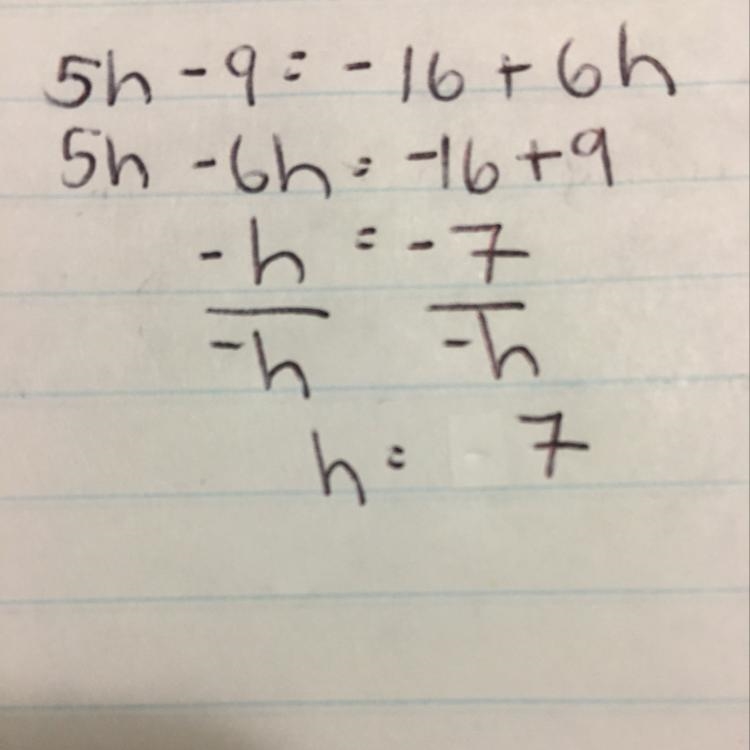 5h - 9 = -16 + 6h
5h - 6h = -16 + 9
-h = -7
-h -h
h = 7